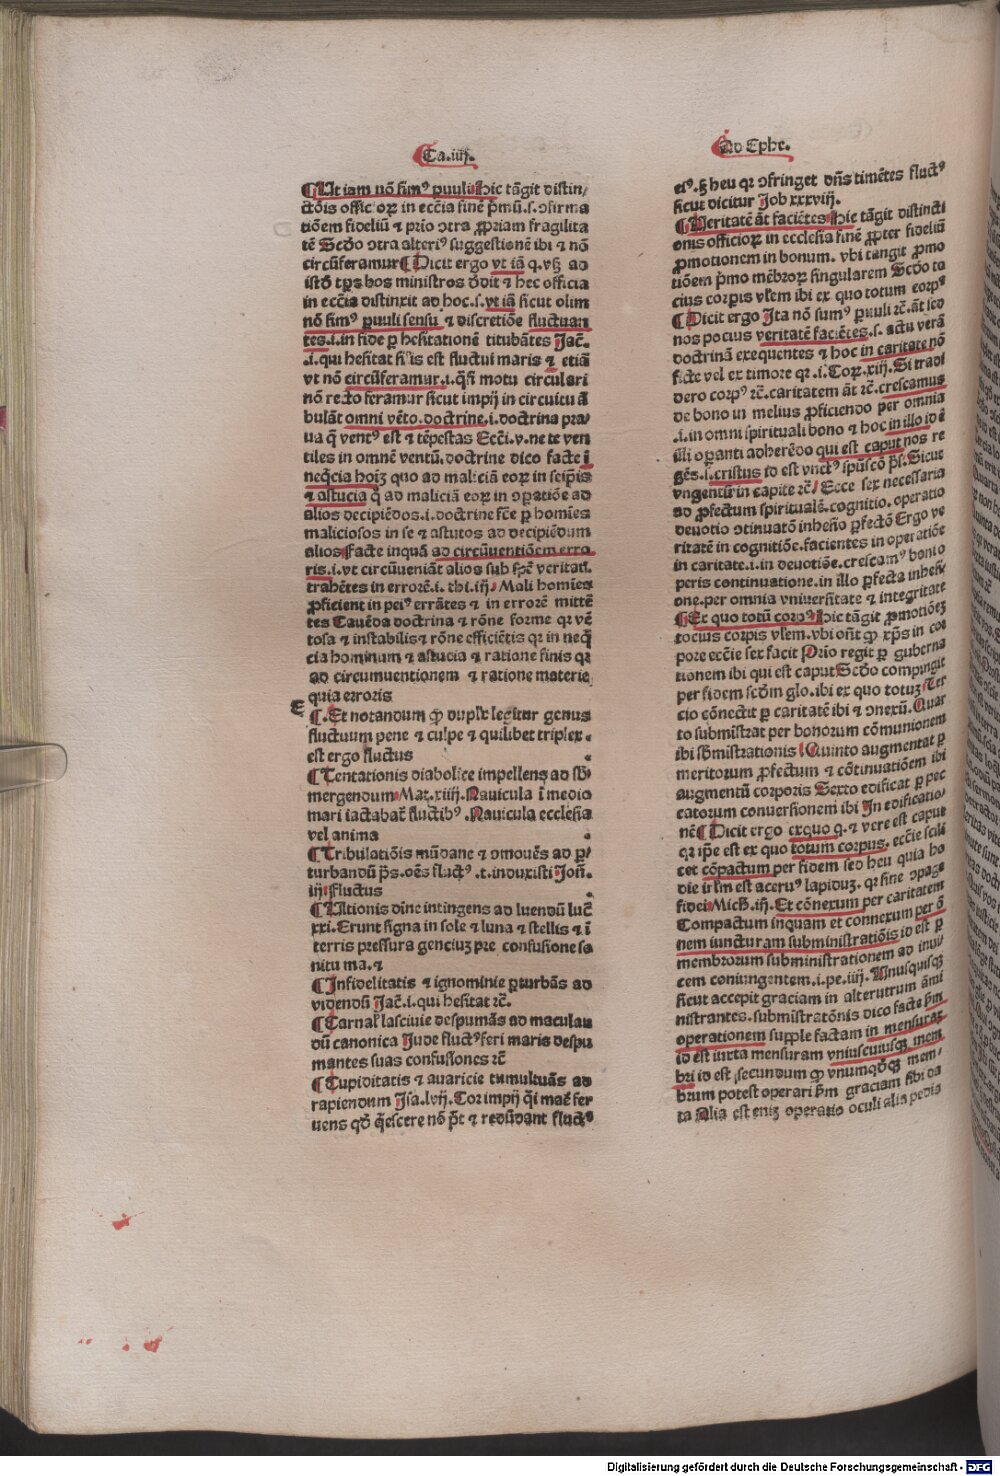 Ca.iiij.
Ad Ephe.
¶Ut iam nō simꝰ puuli Hic tāgit distin/
ctōis officioꝝ in ecc̄ia finē p̄mū.s.ɔfirma
tiōem fideliū ⁊ prīo ɔtra ꝓpriam fragilita
tē Scd̄o ɔtra alteriꝰ suggestionē ibi ⁊ nō
circūferamur ¶Dicit ergo vt iā q.vsqꝫ ad
istd̄ tp̄s hos ministros d̄dit ⁊ hec officia
in ecc̄ia distinxit ad hoc.s.vt iā sicut olim
nō simꝰ puuli sensu ⁊ discretiōe fluctuan
tes.i.in fide ꝑ hesitationē titubātes Jac̄.
.i.qui hesitat sil̄is est fluctui maris ⁊ etiā
vt nō circūferamur.i.q̄si motu circulari
nō recto feramur sicut impij in circuitu ā
bulāt omni vēto.doctrine.i.doctrina pra/
ua q̄ ventꝰ est ⁊ tēpestas Ecc̄i.v.ne te ven
tiles in omnē ventū.doctrine dico facte ī
neq̄cia hoīꝫ quo ad maliciā eoꝝ in seip̄is
⁊ astucia q̄ ad maliciā eoꝝ in ɔpatiōe ad
alios decipiēdos.i.doctrine fc̄e ꝑ homīes
maliciosos in se ⁊ astutos ad decipiēdum
alios facte inquā ad circūuentiōem erro
ris.i.vt circūueniāt alios sub sp̄e veritatꝭ.
trahētes in errorē.i.thi.iij.Mali homīes
ꝓficient in peiꝰ errātes ⁊ in errorē mittē
tes Cauēda doctrina ⁊ rōne forme qꝛ vē
tosa ⁊ instabilis ⁊ rōne efficiētis qꝛ in neq̄
cia hominum ⁊ astucia ⁊ ratione finis qꝛ
ad circumuentionem ⁊ ratione materie
quia erroris
E
¶.Et notandum ꝙ dupl̄r legitur genus
fluctuum pene ⁊ culpe ⁊ quilibet triplex.
est ergo fluctus
¶Tentationis diabolice impellens ad sb̄
mergendum Mat.xiiij.Nauicula ī medio
mari iactabat̄ fluctibꝰ.Nauicula ecclesia
vel anima
¶Tribulatiōis mūdane ⁊ ɔmouēs ad ꝑ/
turbandū p̄s.oēs fluctꝰ.t.induxisti Joñ.
iij.Fluctus
¶Ultionis diīne intingens ad luendū luc̄
xxi.Erunt signa in sole ⁊ luna ⁊ stellis ⁊ ī
terris pressura genciuꝫ pre confusione so
nitu ma.⁊
¶Infidelitatis ⁊ ignominie ꝑturbās ad
videndū Jac̄.i.qui hesitat ꝛc̄.
¶Carnal̄ lasciuie despumās ad maculan
dū canonica Jude fluctꝰ feri maris despu
mantes suas confusiones ꝛc̄
¶Cupiditatis ⁊ auaricie tumultuās ad
rapiendum Jsa.lvij.Cor impij q̄i mar̄ fer
uens qd̄ q̄escere nō p̄t ⁊ redūdant fluctꝰ
eiꝰ.sꝫ heu qꝛ ɔfringet dn̄s timētes fluctꝰ
sicut dicitur Job xxxviij.
¶Veritatē āt faciētes Hic tāgit distincti
onis officioꝝ in ecclesia finē ꝓpter fideliū
ꝓmotionem in bonum.vbi tangit ꝓmo
tiōem p̄mo mēbroꝝ singularem Scd̄o to
cius corꝑis vl̄em ibi ex quo totum corpꝰ
¶Dicit ergo Ita nō sumꝰ puuli ꝛc̄.āt sed
nos pocius veritatē faciētes.s.actu verā
doctrinā exequentes ⁊ hoc in caritate nō
ficte vel ex timore qꝛ.i.Coꝝ.xiij.Si tradi
dero corpꝰ ꝛc̄.caritatem āt ꝛc̄.crescamus
de bono in melius ꝓficiendo per omnia
.i.in omni spirituali bono ⁊ hoc in illo id ē
illi oꝑanti adherēdo qui est caput nos re
gēs.i.cristus id est vnctꝰ spūscō p̄s.Sicut
vngentū in capite ꝛc̄ Ecce sex necessaria
ad ꝓfectum spiritualē.cognitio.operatio
deuotio ɔtinuatō inhesio ꝑfectō Ergo ve
ritatē in cognitiōe.facientes in operatiōe
in caritate.i.in deuotiōe.crescamꝰ boni o
peris continuatione.in illo ꝑfecta inhesi
one.per omnia vniuersitate ⁊ integritate
¶Ex quo totū corpꝰ Hic tāgit ꝓmotiōeꝫ
tocius corꝑis vl̄em.vbi oñt ꝙ xp̄s in cor
pore ecc̄ie sex facit Prīo regit ꝑ guberna
tionem ibi qui est caput Scd̄o compingit
per fidem scd̄m glo.ibi ex quo totuꝫ Ter
cio cōnectit ꝑ caritatē ibi ⁊ ɔnexū.Quar
to submistrat per bonorum cōmunionem
ibi sb̄mistrationis Quinto augmentat ꝑ
meritorum ꝓfectum ⁊ cōtinuatiōem ibi
augmentū corporis Sexto edificat ꝑ pec
catorum conuersionem ibi In edificatio
nē ¶Dicit ergo exquo q.⁊ vere est caput
qꝛ ip̄e est ex quo totum corpus.ecc̄ie scili
cet cōpactum per fidem sed heu quia ho
die irl̄m est aceruꝰ lapiduꝫ.qꝛ sine ɔpage
fidei Mich̄.iij.Et cōnexum per caritatem
Compactum inquam et connexum per ō
nem iuncturam subministratiōis id est ꝑ
membrorum subministrationem ad inui
cem coniungentem.i.pe.iiij.Unusquisqꝫ
sicut accepit graciam in alterutrum āmi
nistrantes.submistratōnis dico facte p̄m
operationem supple factam in mensuraꝫ
id est iuxta mensuram vniuscuiusqꝫ mem
bri id est secundum ꝙ vnumqd̄qꝫ mem/
brum potest operari p̄m graciam sibi da
ta Alia est eniꝫ operatio oculi alia pedis
Digitalisierung gefördert durch die Deutsche Forschungsgemeinschaft - DFG